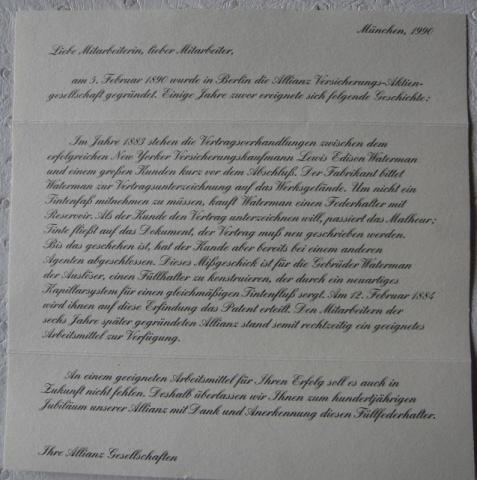 München, 1990
Liebe Mitarbeiterin, lieber Mitarbeiter,
am 5. Februar 1890 wurde in Berlin die Allianz Versicherungs-Aktien-
gesellschaft gegründet. Einige Jahre zuvor ereignete sich folgende Geschichte:
Im Jahre 1883 stehen die Vertragsverhandlungen zwischen dem
erfolgreichen New Yorker Versicherungskaufmann Lewis Edison Waterman
und einem großen Kunden kurz vor dem Abschluß. Der Fabrikant bittet
Waterman zur Vertragsunterzeichnung auf das Werksgelände. Um nicht ein
Tintenfaß mitnehmen zu müssen, kauft Waterman einen Federhalter mit
Reservoir. Als der Kunde den Vertrag unterzeichnen will, passiert das Malheur:
Tinte fließt auf das Dokument, der Vertrag muß neu geschrieben werden.
Bis das geschehen ist, hat der Kunde aber bereits bei einem anderen
Agenten abgeschlossen. Dieses Mißgeschick ist für die Gebrüder Waterman
der Auslöser, einen Füllhalter zu konstruieren, der durch ein neuartiges
Kapillarsystem für einen gleichmäßigen Tintenfluß sorgt. Am 12. Februar 1884
wird ihnen auf diese Erfindung das Patent erteilt. Den Mitarbeitern der
sechs Jahre später gegründeten Allianz stand somit rechtzeitig ein geeignetes
Arbeitsmittel zur Verfügung.
An einem geeigneten Arbeitsmittel für Ihren Erfolg soll es auch in
Zukunft nicht fehlen. Deshalb überlassen wir Ihnen zum hundertjährigen
Jubiläum unserer Allianz mit Dank und Anerkennung diesen Füllfederhalter.
Ihre Allianz Gesellschaften